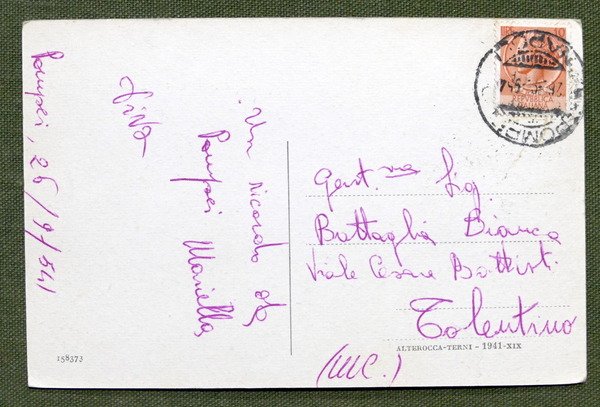 Pompei, 26/9/541
Un ricordo da
Pompei Mariella
Gent.ma Sig.
Battaglia Bianca
Viale Cesare Battisti
Tolentino
(MC.)
158373
ALTEROCCA-TERNI - 1941-XIX